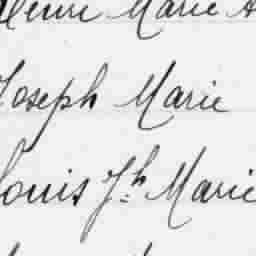 Henri Marie A
Joseph Marie
Louis Jh Marie